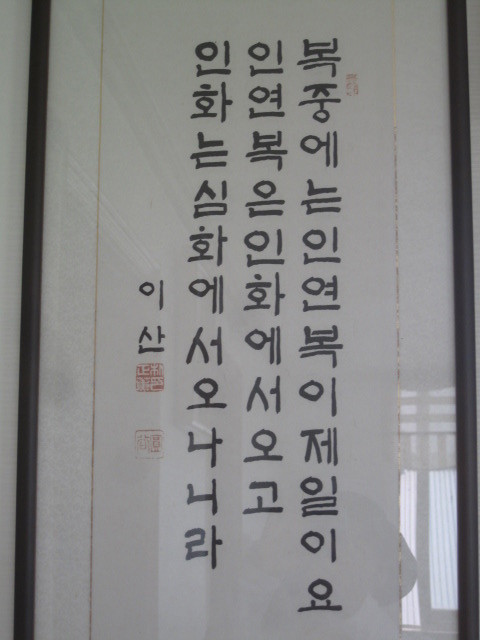 복중에는인연복이제일이요
인연복은인화에서오고
인화는심화에서오나니라
이산